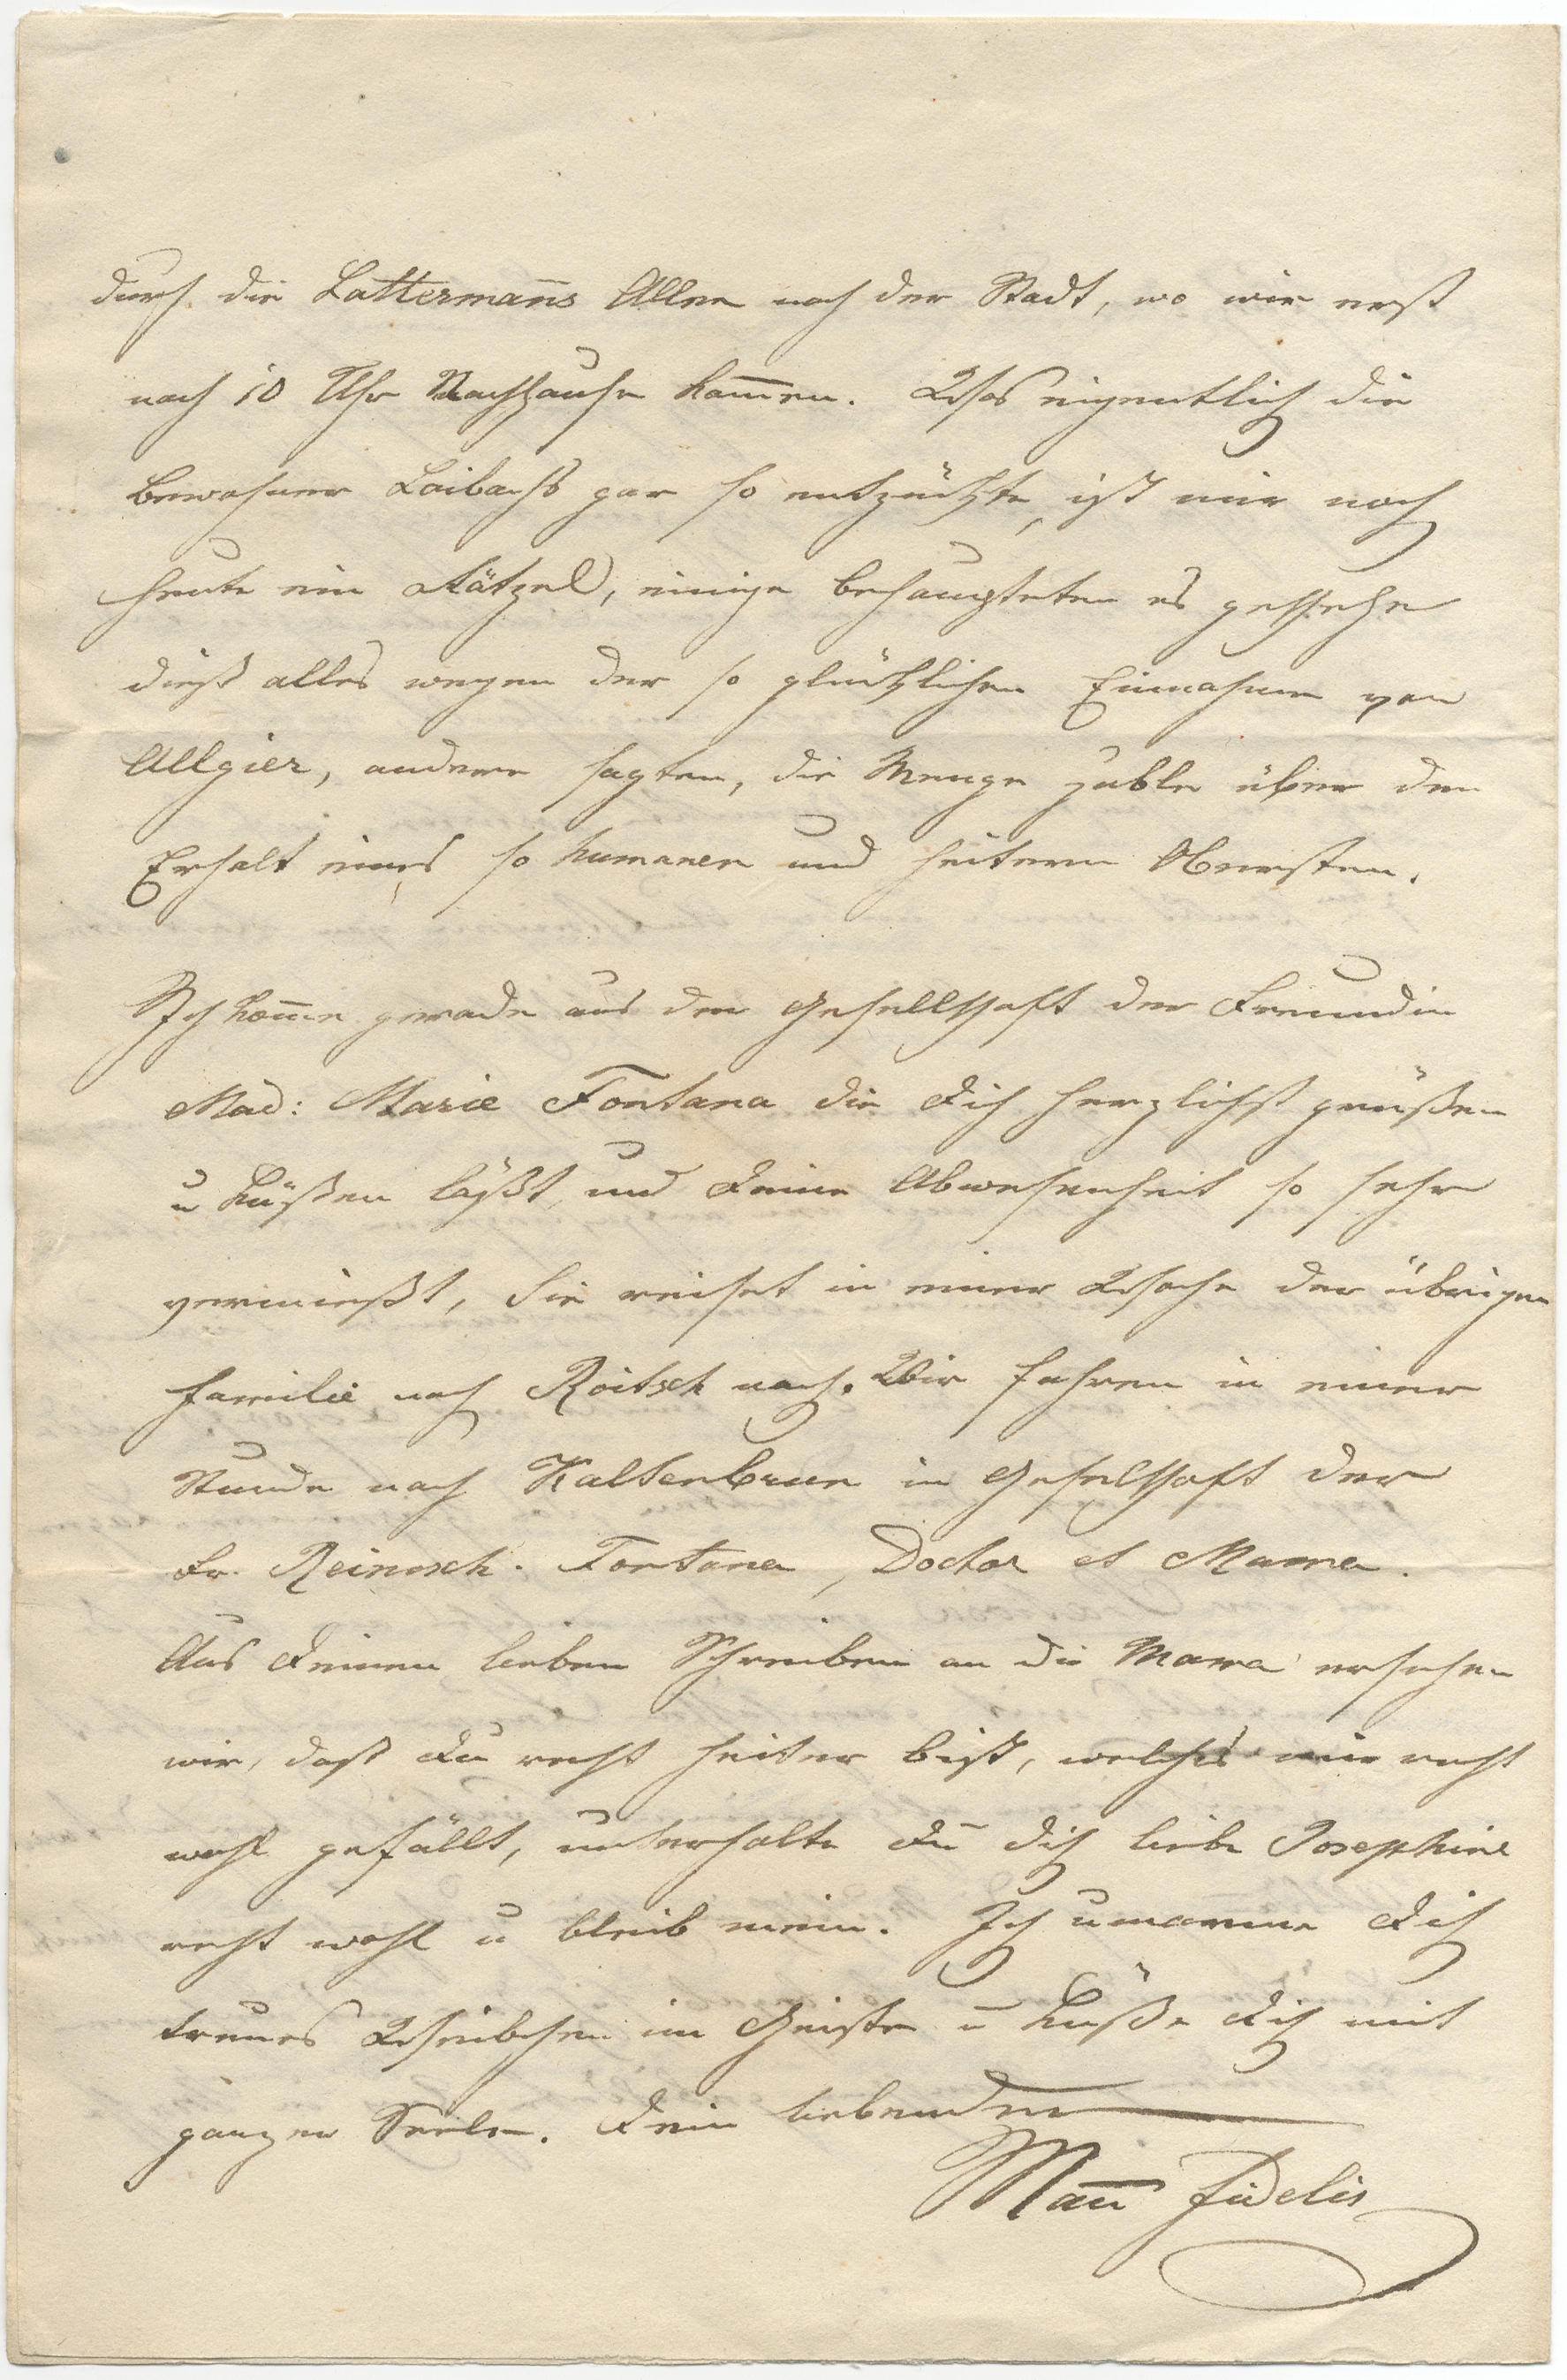 durch die Latterman̄s Allee nach der Stadt, wo wir erst
nach 10 Uhr Nachhause kom̄en. Was eigentlich die
Bewohner Laibachs gar so entzückte, ist mir noch
heute ein Rätzel, einige behaupteten es geschehe
dieß alles wegen der so glücklichen Einnahme von
Allgier, andere sagten, die Menge juble über den
Erhalt eines so humanen und heitern Obersten.
Ich kom̄e gerade aus der Gesellschaft der Freundin
Mad: Marie Fontana die Dich herzlichst grüßen
u küßen läßt, und Deine Abwesenheit so sehr
vermießt, Sie reiset in einer Woche der übrigen
Familie nach Roitsch nach. Wir fahren in einer
Stunde nach Kaltenbrun in Gesellschaft der
Fr. Reinisch. Fontana, Doctor et Mama.
Aus Deinen lieben Schreiben an die Mama ersehen
wir, daß Du recht heiter bist, welches mir recht
wohl gefällt, unterhalte Du dich liebe Josephine
recht wohl u bleib mein. Ich umarme Dich
treues Weibchen im Geiste u küße Dich mit
ganzer Seele. Dein liebender
Man̄ Fidelis